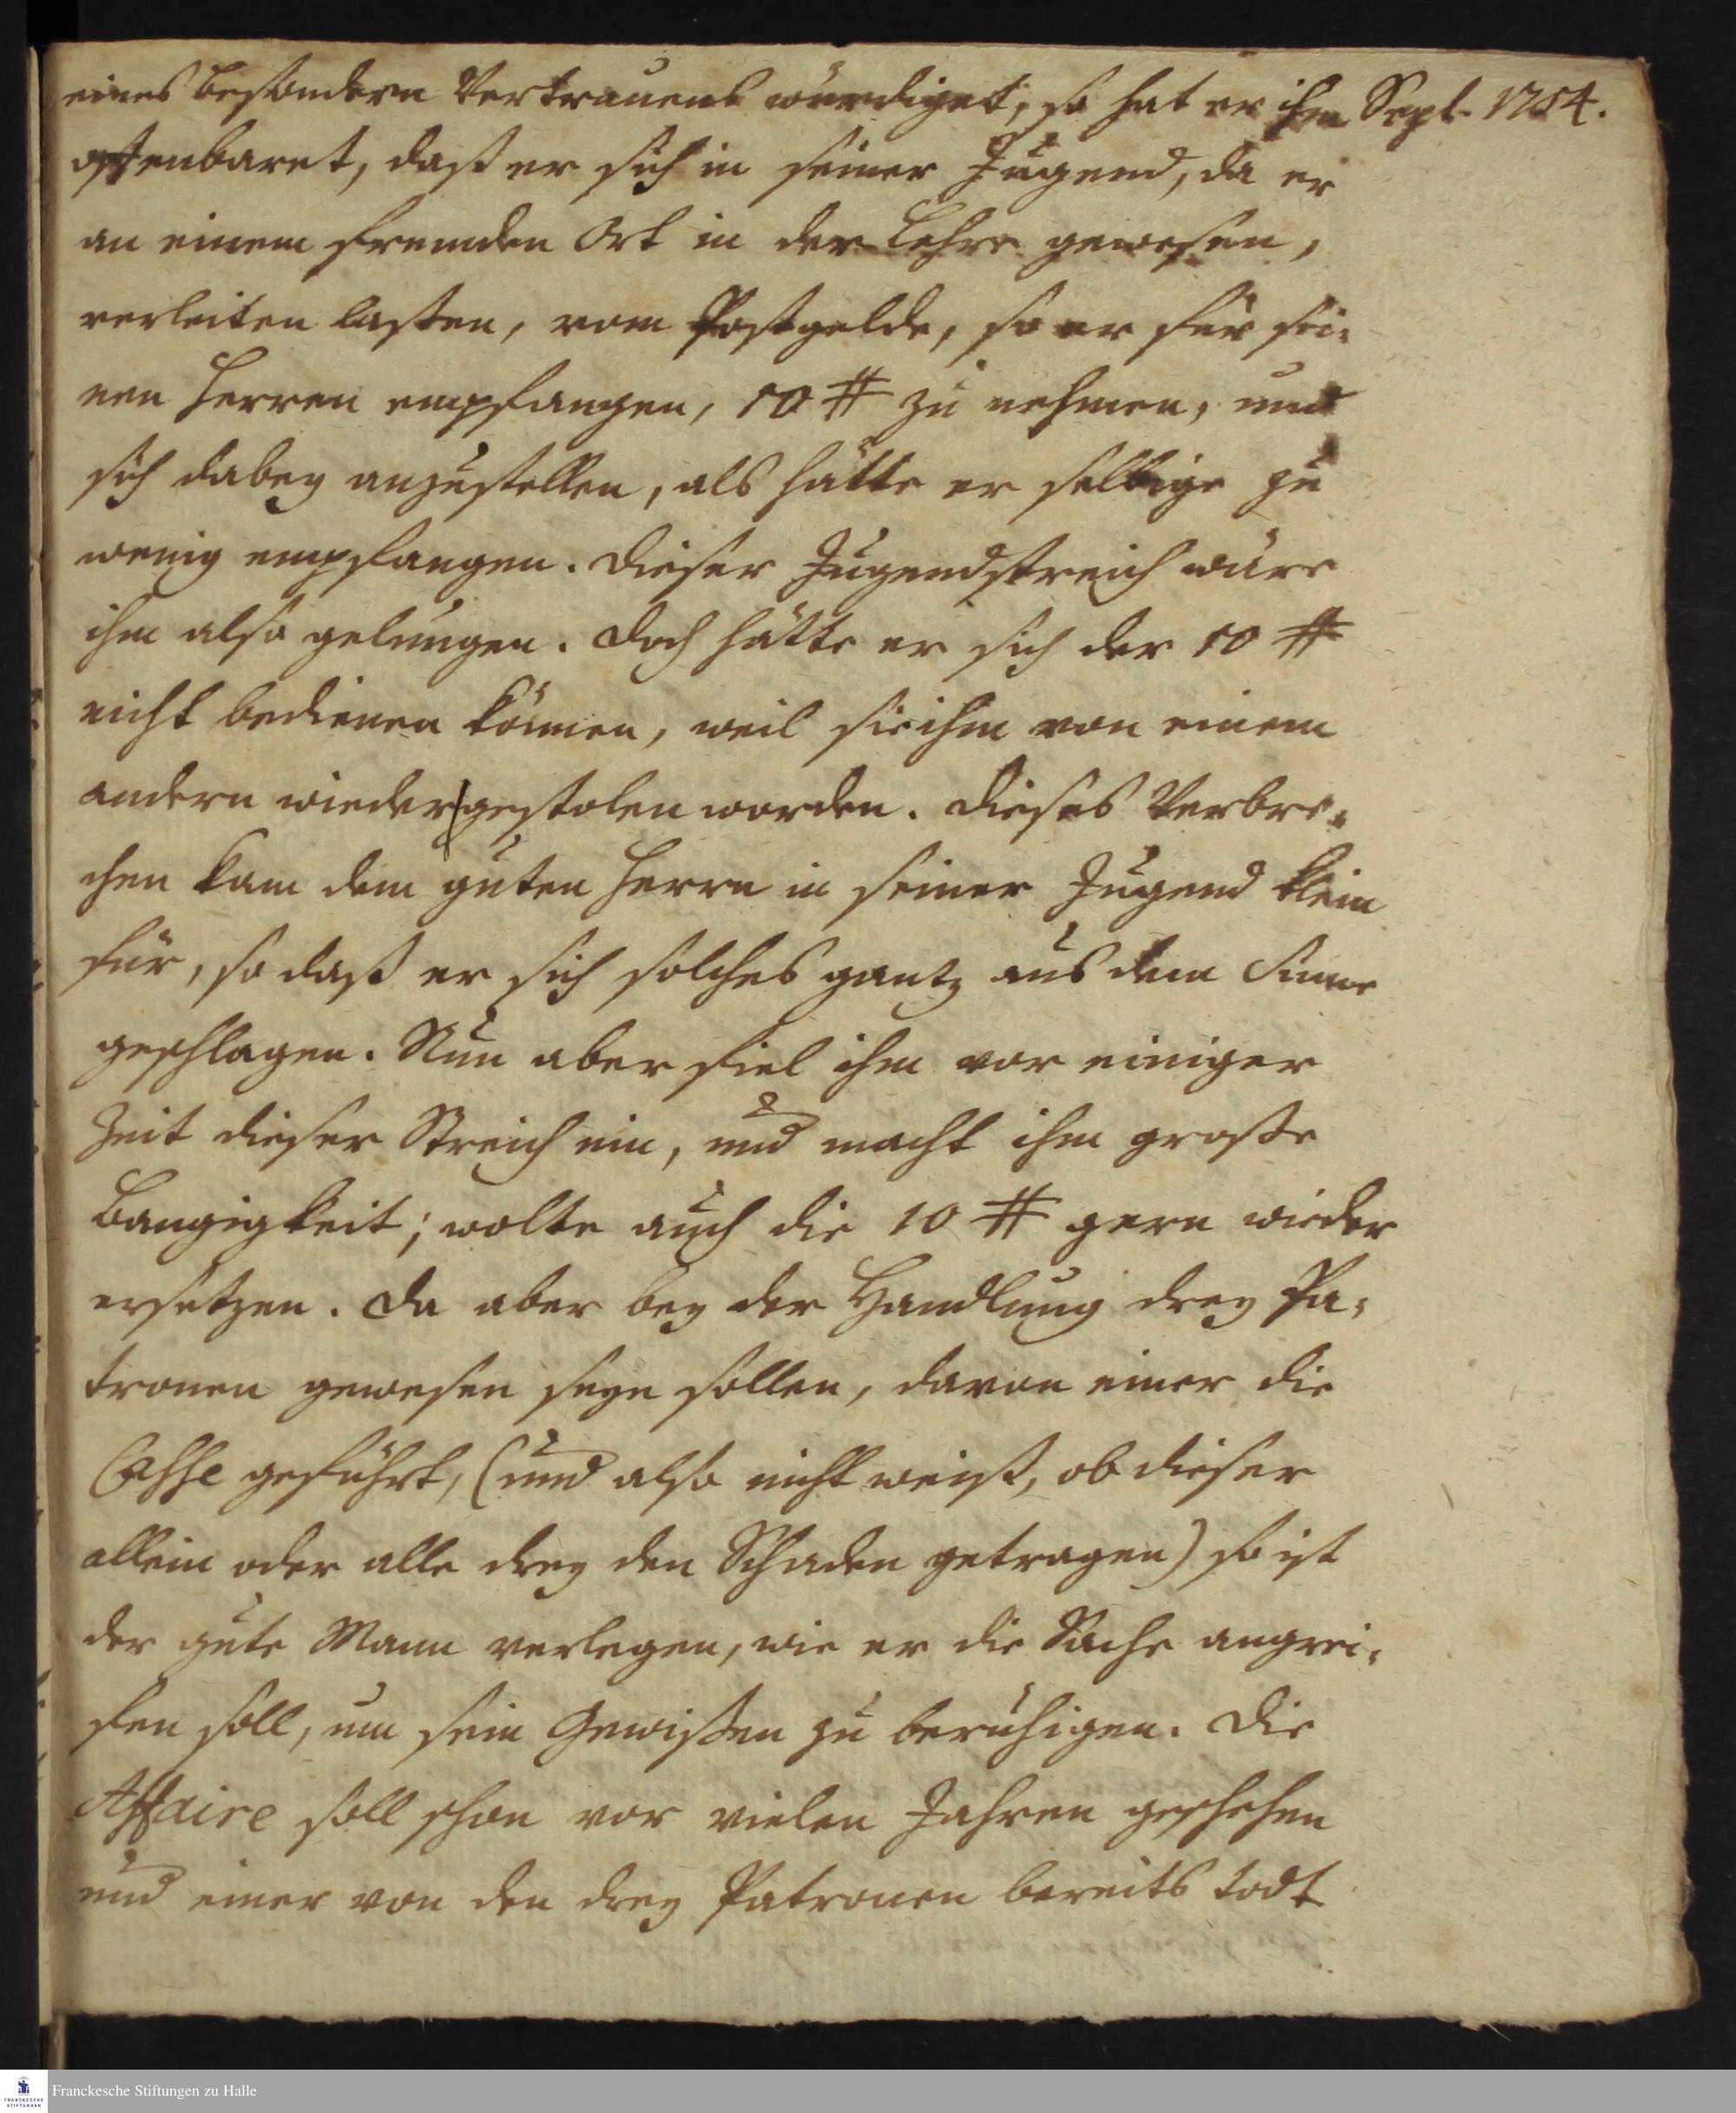 eines besondern Vertrauens würdiget, so hat er ihm Sept. 1754.
offenbaret, daß er sich in seiner Jugend, da er
an einem fremden Ort in der Lehre gewesen,
verleiten laßen, vom Postgelde, so er für sei-
nen Herren empfangen, 10 # zu nehmen, und
sich dabey anzustellen, als hätte er selbige zu
wenig empfangen. Dieser Jugendstreich wäre
ihm also gelungen. Doch hätte er sich der 10 #
nicht bedienen können, weil sie ihm von einem
andern wieder gestolen worden. Dieses Verbre-
chen kam dem guten Herrn in seiner Jugend klein
für, so daß er sich solches gantz aus dem Sinne
geschlagen. Nun aber fiel ihm vor einiger
Zeit dieser Streich ein, und macht ihm große
Bangigkeit; wolte auch die 10 # gern wieder
ersetzen. Da aber bey der Handlung drey Pa-
tronen gewesen seyn sollen, davon einer die
Casse geführt, (und also nicht weiß, ob dieser
allein oder alle drey den Schaden getragen) so ist
der gute Mann verlegen, wie er die Sache angrei-
fen soll, um sein Gewißen zu beruhigen. Die
Affaire soll schon vor vielen Jahren geschehen
und einer von den drey Patronen bereits todt
FRANCKESCHE STIFTUNGEN
Franckesche Stiftungen zu Halle